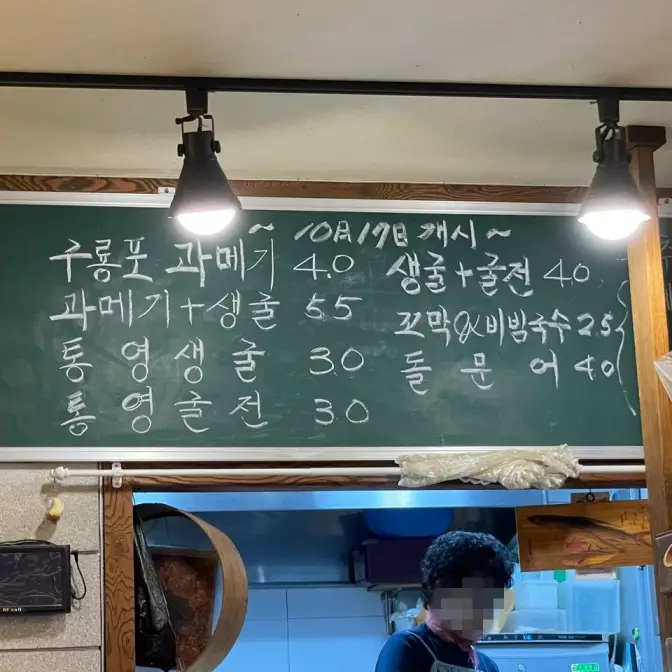 ~ 10月17日 개시 ~
구룡포 과메기 4.0
과메기+생굴 5.5
통영생굴 3.0
통영굴전 3.0
생굴+굴전 4.0
꼬막&비빔국수 2.5
돌문어 4.0